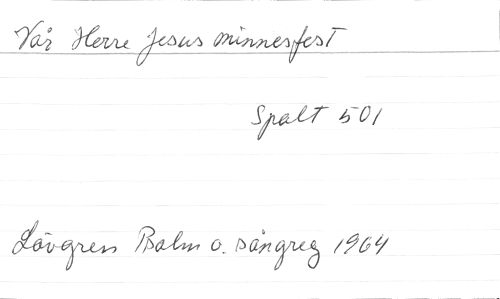 Vår Herre Jesus minnesfest
Spalt 501
Lövgren Psalm o. sångreg 1964